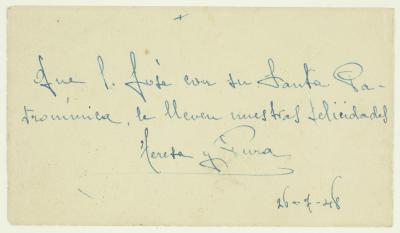 +
Que S. José con su Santa Pa-
tronímica, le lleven nuestras felicidades
Teresa y Pura
26-7-48